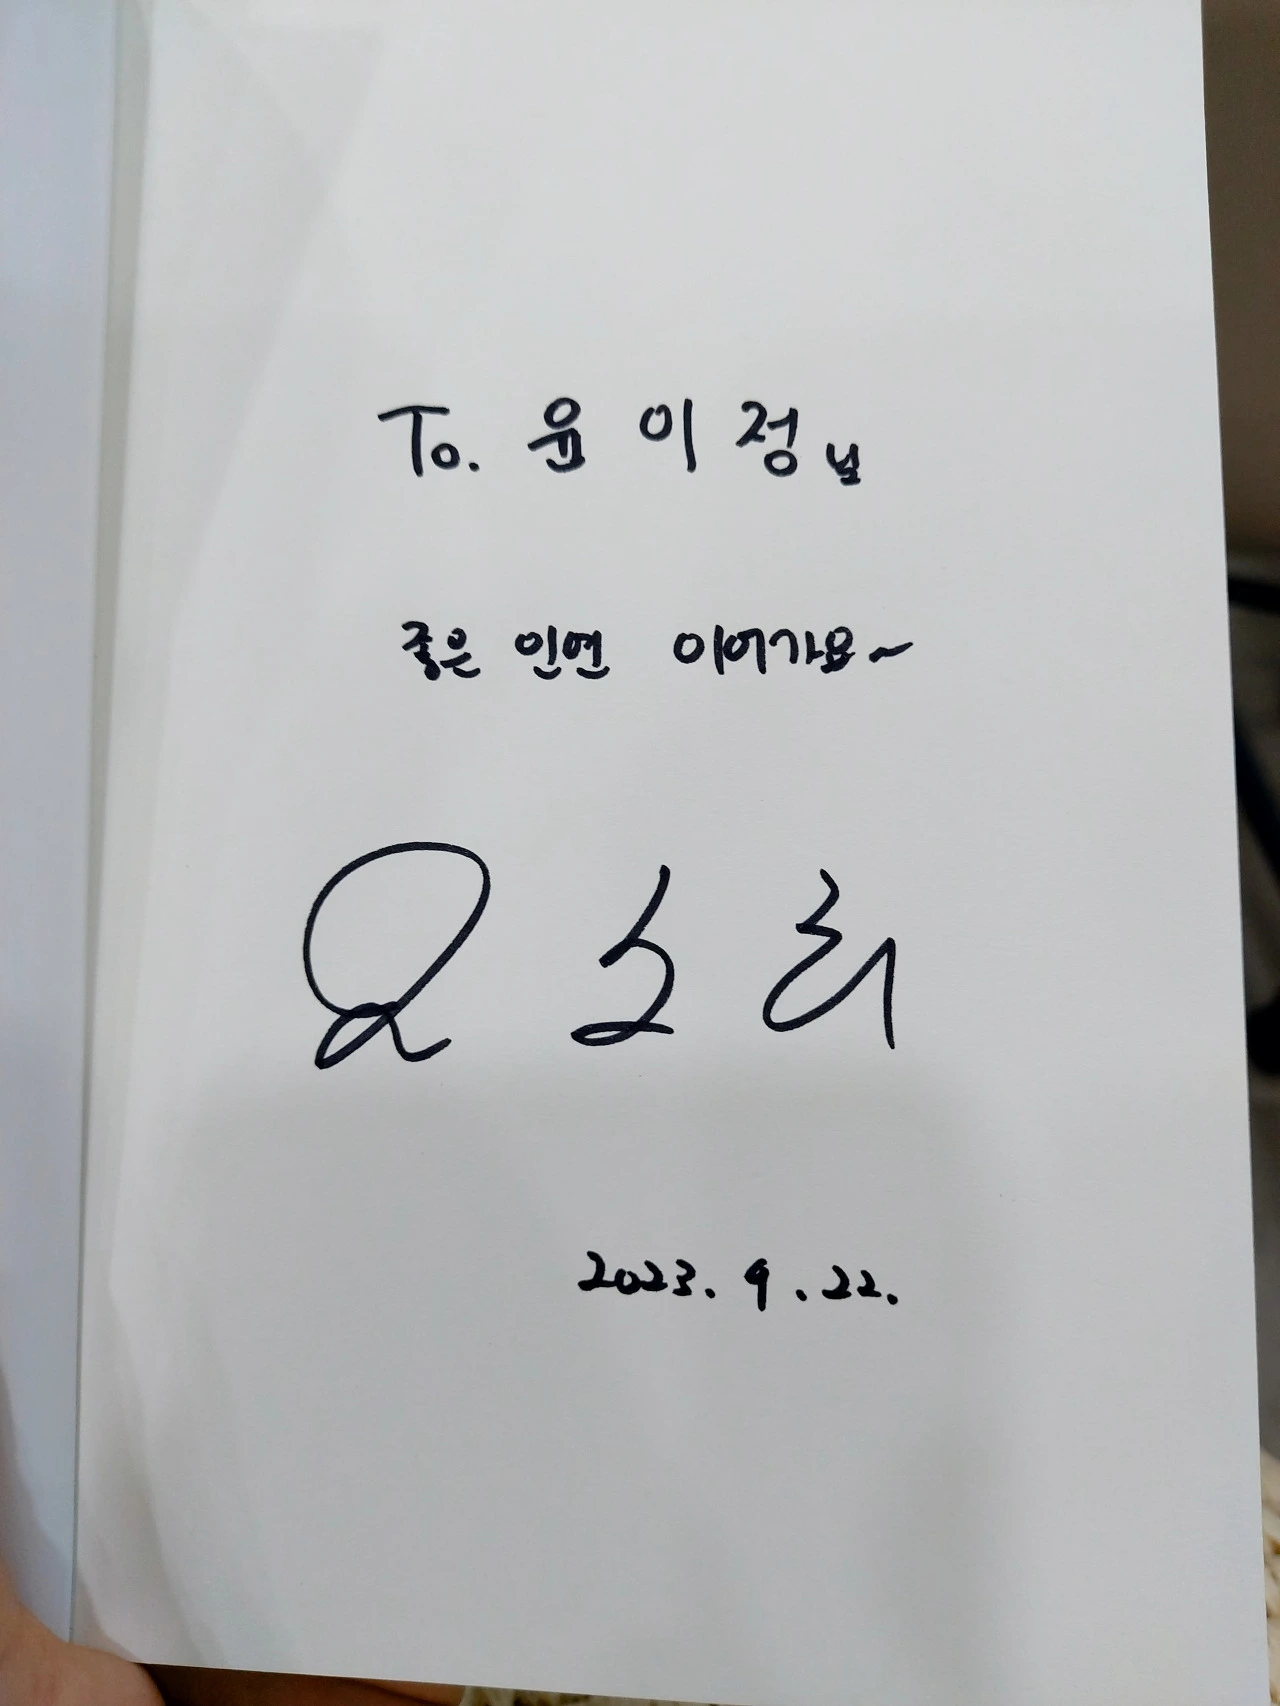 To. 윤이정님
좋은 인연 이어가요~
2023. 9. 22.